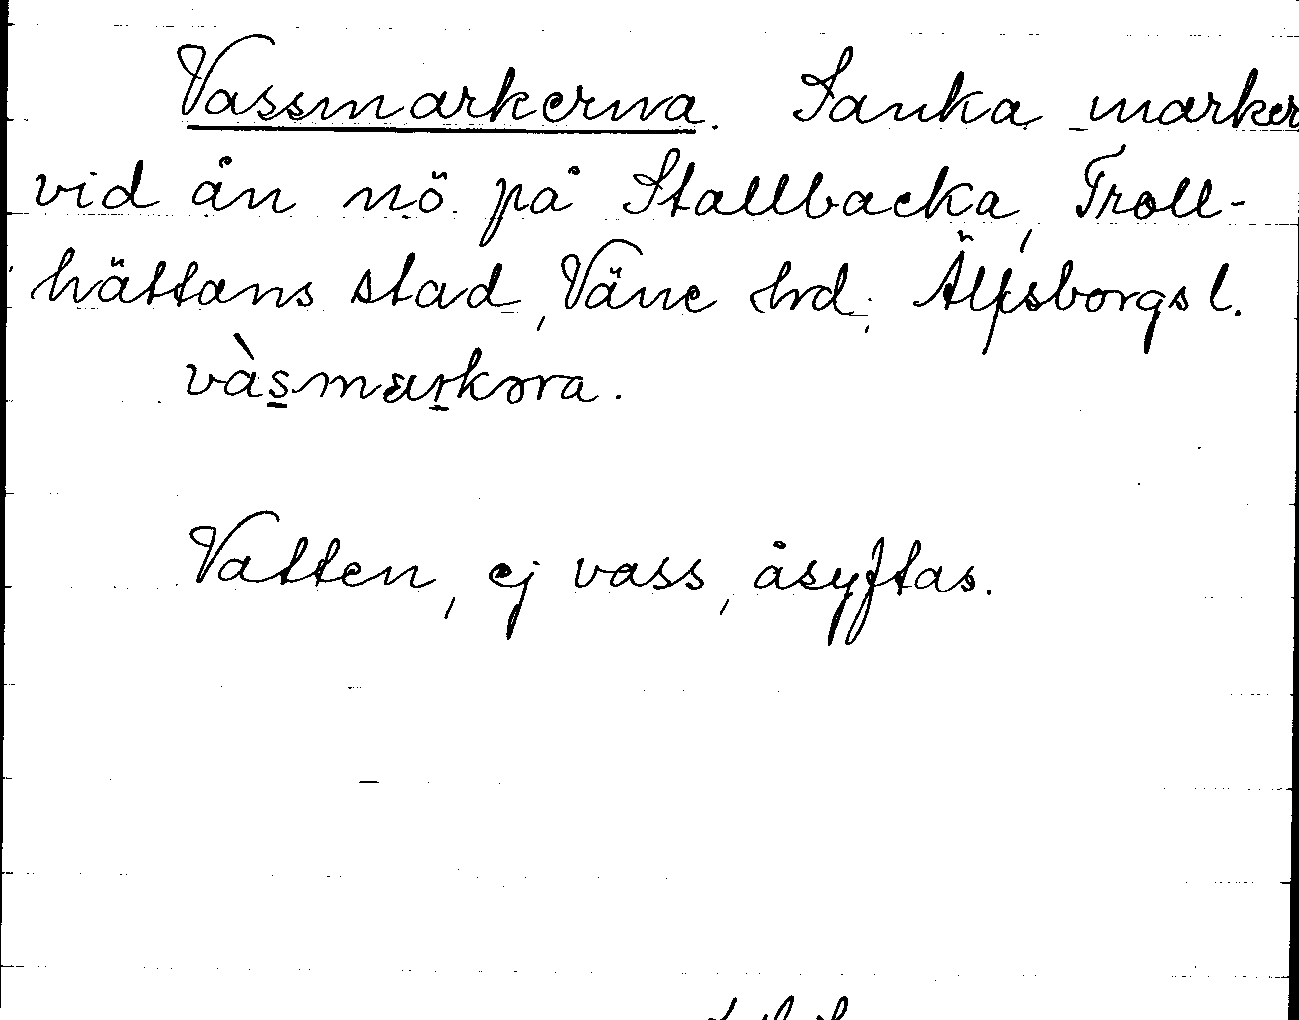 Vassmarkerna. Sanka marker
vid ån nö på Stallbacka, Troll-
hättans stad, Väne hrd, Älfsborgs l.
vàs̲mar̲kəra.
Vatten, ej vass, åsyftas.